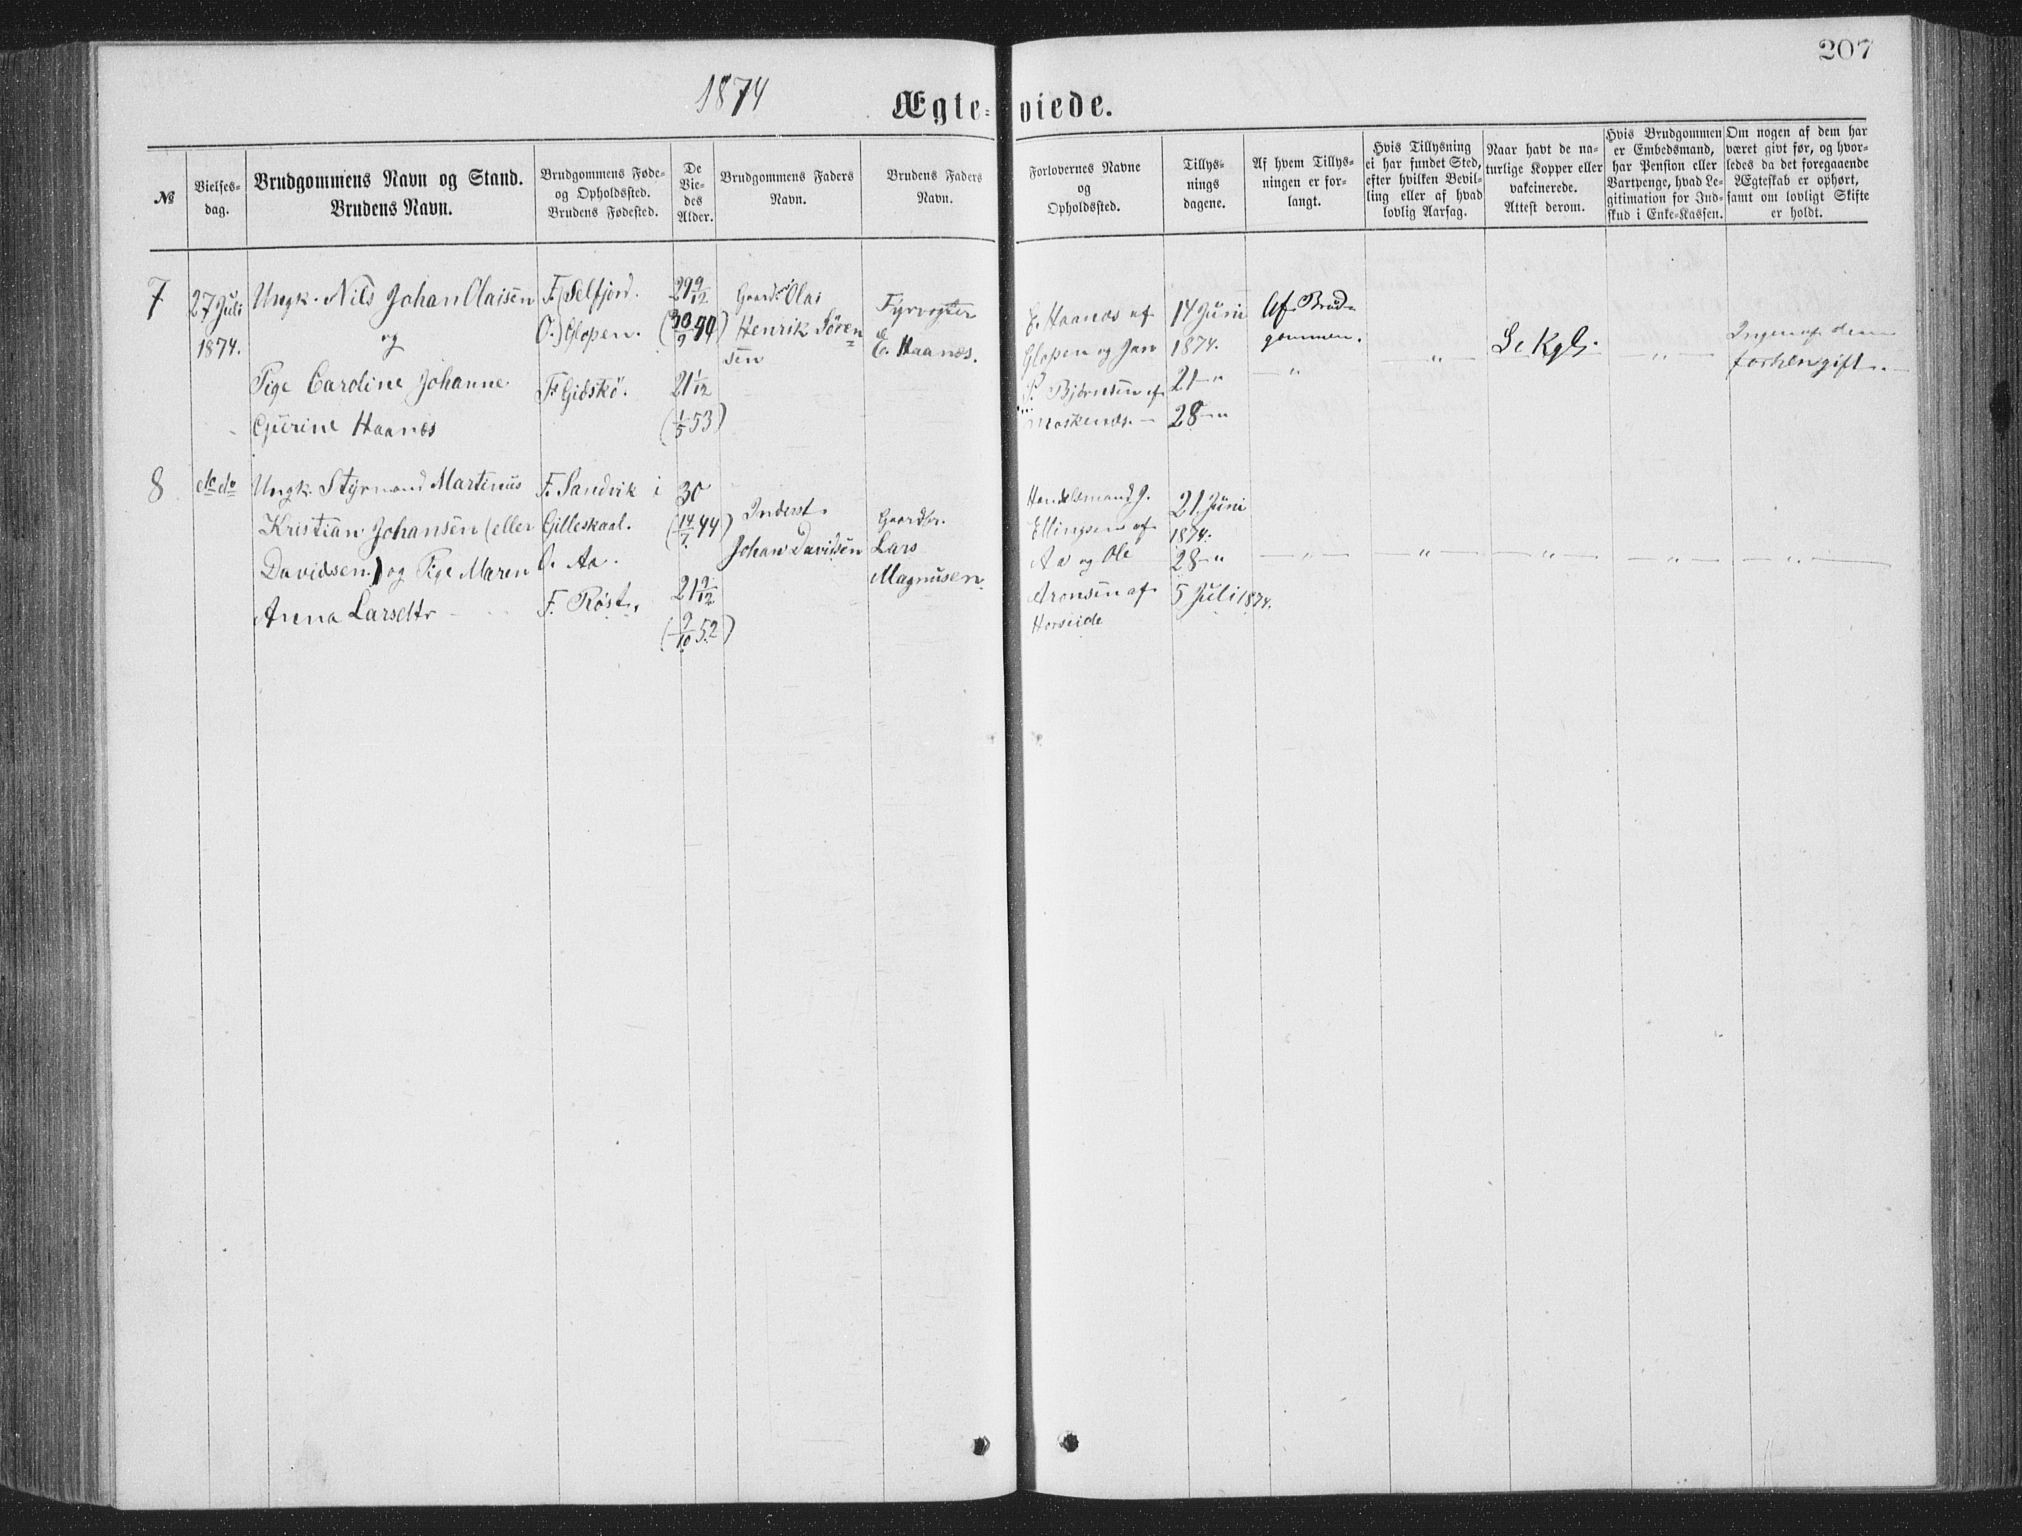 207
1874
Ægte-viede.
№
Vielses-
dag.
Brudgommens Navn og Stand.
Brudens Navn.
Brudgommens Føde-
og Opholdssted.
Brudens Fødested.
De
Vie-
des
Alder.
Brudgommens Faders
Navn.
Brudens Faders
Navn.
Forlovernes Navne
og
Opholdssted.
Tillys-
nings
dagene.
Af hvem Tillys-
ningen er for-
langt.
Hvis Tillysning
ei har fundet Sted,
efter hvilken Bevil-
ling eller af hvad
lovlig Aarsag.
Naar havt de na-
turlige Kopper eller
vakcinerede.
Attest derom.
Hvis Brudgommen
er Embedsmand,
har Pension eller
Vartpenge, hvad Le-
gitimation for Ind-
skud i Enke-Kassen.
Om nogen af dem har
været givt før, og hvor-
ledes da det foregaaende
Ægteskab er ophørt,
samt om lovligt Skifte
er holdt.
7
27 Juli
1874.
Ungk. Nils Johan Olaisen
og
Pige Caroline Johanne
Gjurine Haanæs
F.) Selfjord.
O.) Glopen.
F. Gidskö.
29 9/12
(30/9 44)
21 1/12
(1/5 53)
Gaardbr Olai
Henrik Sören=
sen
Fyrvogter
E. Haanæs.
E. Haanæs af
Glopen og Jan
P. Bjørnsen af
Moskenæs. —
14 Juni
1874.
21 — "
28 — "
Af Brud=
gommen.
— " —
— " —
Se Kgb.
— " —
Ingen af dem
forhen gift. —
8
do do
Ungk. Styrmand Martinus
Kristian Johansen (eller
Davidsen) og Pige Maren
Anna Larsdtr
F. Sandvik i
Gilleskaal.
O. Aa.
F. Röst.
30
(14/7 44)
21 9/12
(9/10 52)
Inderst.
Johan Davidsen
Gaardbr.
Lars
Magnusen
Handelsmand J.
Ellingsen af
Aa og Ole
Aronsen af
Horseide
21 Juni
1874.
28 — "
5 Juli 1874.
— " —
— " —
— " —
— " —
— " —